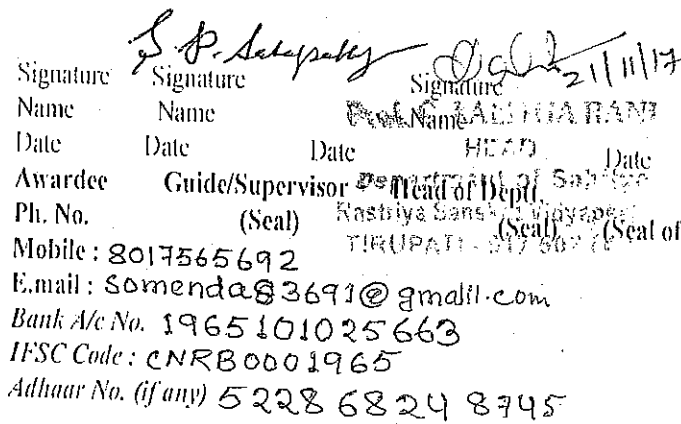 S. P. Satapathy
21/11/17
Signature Signature Signature
Name Name Name
Prof. C. LALITHA RANI
Date Date Date Date
HEAD
Awardee Guide/Supervisor Head of Deptt.
Department of Sahitya
Ph. No. (Seal) (Seal) (Seal of
Rashtriya Sanskrit Vidyapeetha
TIRUPATI - 517 507
Mobile : 8017565692
E.mail : Somenda83691@gmalil.com
Bank A/c No. 1965101025663
IFSC Code : CNRB0001965
Adhaar No. (if any) 5228 6824 8745